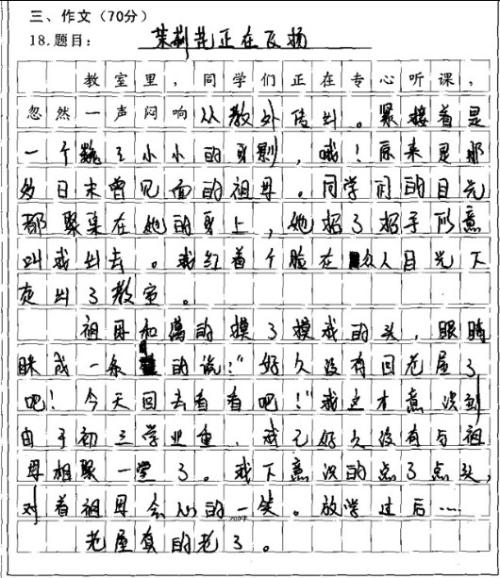 三、作文（70分）
18.题目： 茉莉花正在飞扬
教室里，同学们正在专心听课，
忽然一声闷响从教外传出。紧接着是
一个巍巍小小的身影，哦！原来是那
多日未曾见面的祖母。同学们的目光
都聚集在她的身上，她招了招手示意
叫我出去。我红着个脸在众人目光下
走出了教室。
祖母和蔼的摸了摸我的头，眼睛
眯成一条的说："好久没有回老屋了
吧！今天回去看看吧！"我这才意识到
由于初三学业重，我已好久没有与祖
母相聚一堂了。我下意识的点了点头，
对着祖母会心的一笑。放学过后……
老屋真的老了。